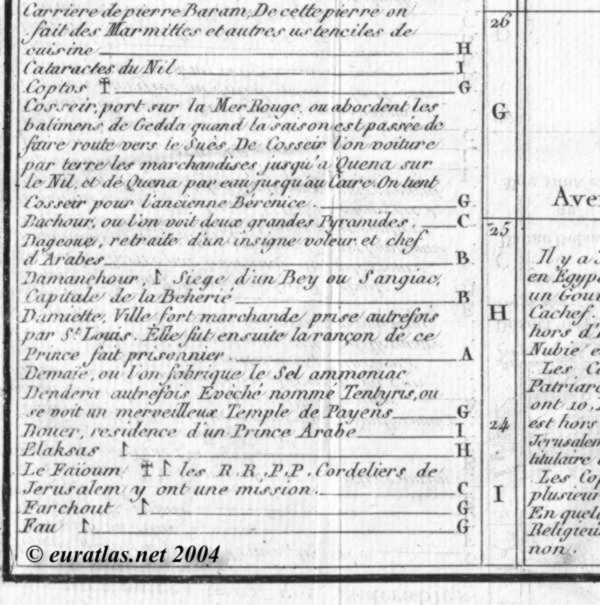 Carriere de pierre Baram, De cette pierre on
fait des Marmittes et autres ustenciles de
cuisine H
Cataractes du Nil I
Coptos G
Cosseir, port sur la Mer Rouge, ou abordent les
batimens de Gedda quand la saison est passée de
faire route vers le Suès. De Cosseir l'on voiture
par terre les marchandises jusqu'a Quena sur
le Nil, et de Quena par eau jusqu'au Caire. On tient
Cosseir pour l'ancienne Bérenice. G
Dachour, ou l'on voit deux grandes Pyramides. C
Dageoue, retraite d'un insigne voleur et chef
d'Arabes B
Damanehour, Siege d'un Bey ou Sangiac,
Capitale de la Beherié B
Damiette, Ville fort marchande prise autrefois
par St. Louis. Elle fut ensuite la rançon de ce
Prince fait prisonnier. A
Demaie, ou l'on fabrique le Sel ammoniac
Dendera autrefois Evêché nommé Tentyris, ou
se voit un merveilleux Temple de Payens G
Douer, residence d'un Prince Arabe I
Elaksas H
Le Faïoum les R.R.P.P. Cordeliers de
Jerusalem y ont une mission. C
Farchout G
Fau G
26
G
25
H
24
I
Aver
Il y a
en Egyp
un Gou
Cachef.
hors d'
Nubie e
Les C
Patriarc
ont 10.
est hors
Jerusalem
titulaire
Les Cop
plusieur
En quel
Religieu
non.
© euratlas.net 2004